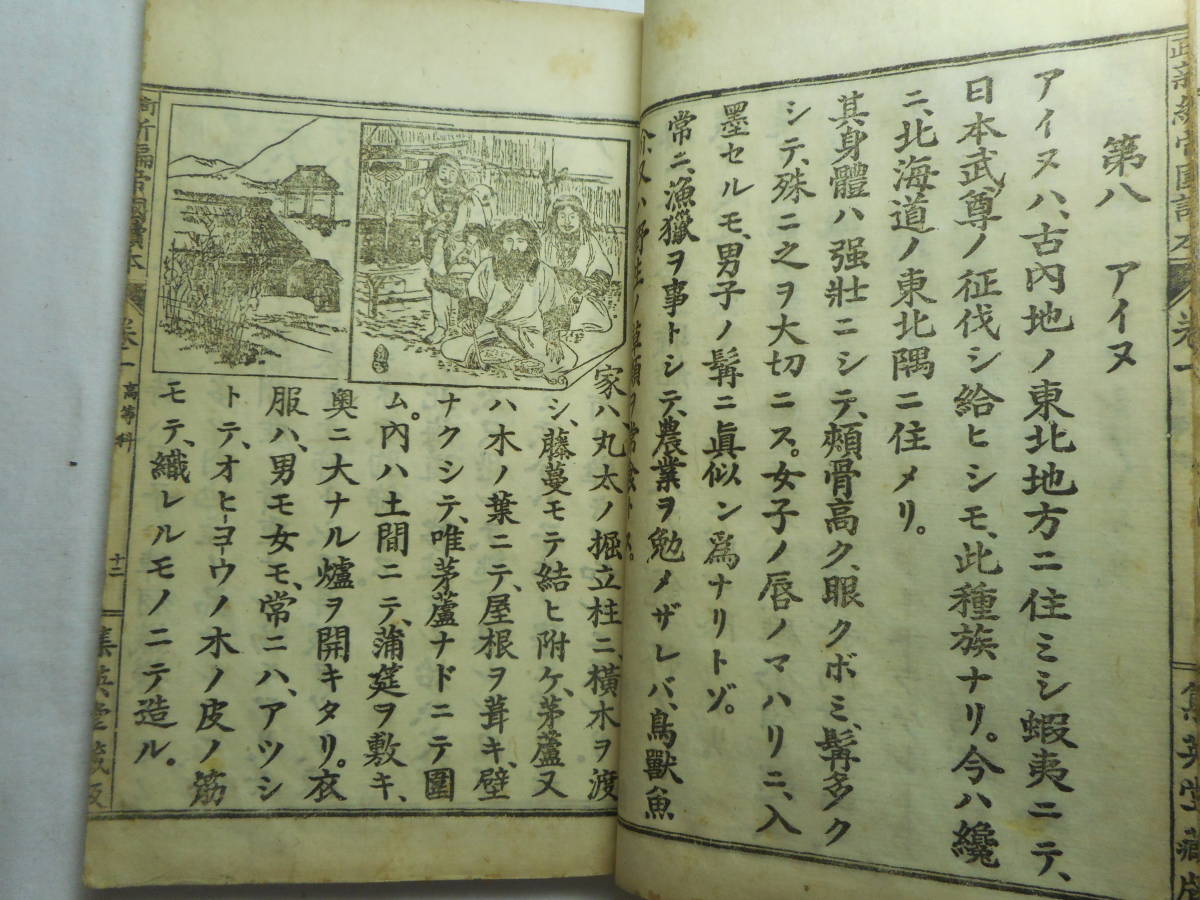 第八 アイヌ
アイヌハ、古內地ノ東北地方ニ住ミシ蝦夷ニテ、
日本武尊ノ征伐シ給ヒシモ、此種族ナリ。今ハ纔
ニ、北海道ノ東北隅ニ住メリ。
其身體ハ强壯ニシテ、頰骨高ク、眼クボミ、髯多ク
シテ、殊ニ之ヲ大切ニス。女子ノ唇ノマハリニ、入
墨セルモ、男子ノ髯ニ眞似ン爲ナリトゾ。
常ニ、漁獵ヲ事トシテ、農業ヲ勉メザレバ、鳥獸魚
介又ハ野生ノ草
家ハ、丸太ノ掘立柱ニ橫木ヲ渡
シ、藤蔓モテ結ヒ附ケ、茅蘆又
ハ木ノ葉ニテ、屋根ヲ葺キ、壁
ナクシテ、唯茅蘆ナドニテ圍
ム。內ハ土間ニテ、蒲筵ヲ敷キ、
奧ニ大ナル爐ヲ開キタリ。衣
服ハ、男モ女モ、常ニハ、アツシ
トテ、オヒョウノ木ノ皮ノ筋
モテ、織レルモノニテ造ル。
新編帝國讀本
卷一 高等科
十二
集英堂藏版